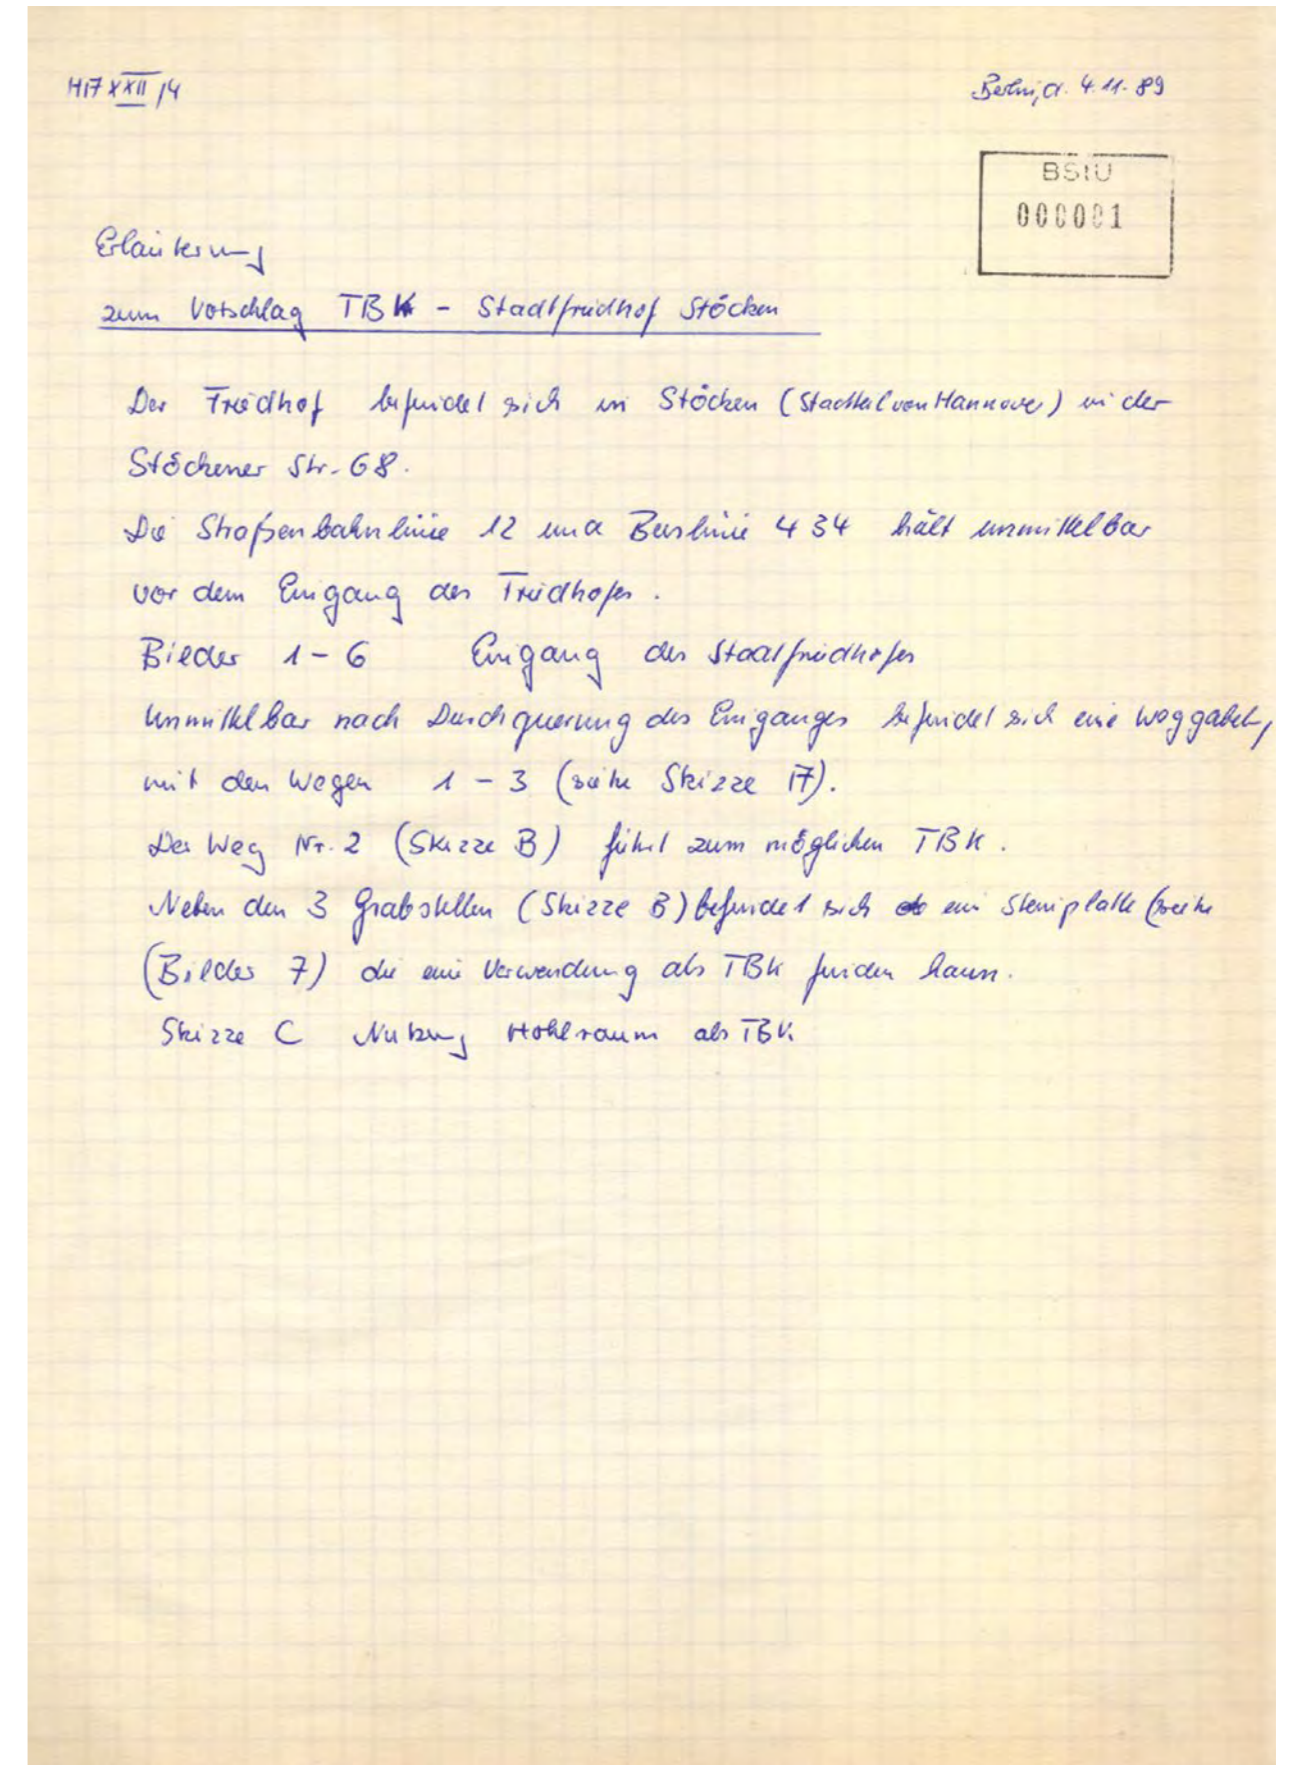 HA XXII/4
Berlin, d. 4.11.89
BStU
000001
Erläuterung
zum Vorschlag TBK - Stadtfriedhof Stöcken
Der Friedhof befindet sich in Stöcken (Stadtteil von Hannover) in der
Stöckener Str. 68.
Die Straßenbahnlinie 12 und Buslinie 434 hält unmittelbar
vor dem Eingang des Friedhofes.
Bilder 1-6 Eingang des Stadtfriedhofes
Unmittelbar nach Durchquerung des Einganges befindet sich eine Weggabelung
mit den Wegen 1-3 (siehe Skizze A).
Der Weg Nr. 2 (Skizze B) führt zum möglichen TBK.
Neben den 3 Grabstellen (Skizze B) befindet sich ein Steinplatte (siehe
(Bilder 7) die eine Verwendung als TBK finden kann.
Skizze C Nutzung Hohlraum als TBK